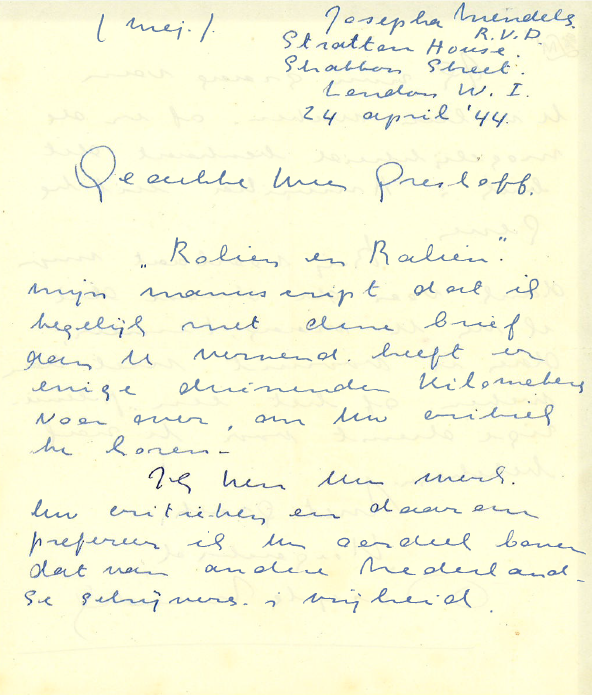 (Mej.)
Josepha Mendels.
R.V.D.
Stratton House.
Stratton Street.
London W. I.
24 april '44.
Geachte Heer Greshoff.
„Rolien en Ralien".
mijn manuscript dat ik
tegelijk met deze brief
aan U verzend. heeft er
enige duizenden Kilometers
voor over, om Uw critiek
te horen -
Ik ken Uw werk.
Uw critieken en daarom
prefereer ik Uw oordeel boven
dat van andere Nederland-
se schrijvers. i vrijheid.